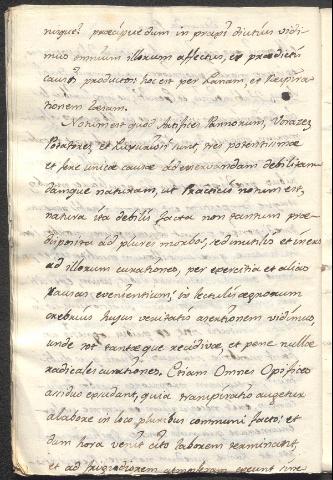 nisque? præcipue dum in præp? diutius vidi-
mus omnium illorum affectus, ex prædictis
causis productos hoc est per Lanam, et Respira-
tionem læsam.
Notum est quod Artifices Pannorum, Voraces
Potatores, et Luxuriosi sunt tres potentissimæ
et fere unicæ causæ ad enervandam debilitan-
damque naturam, ut Practicis notum est,
natura ita debilis facta non tantum præ-
disposita ad plures morbos, sed inutilis et iners
ad illorum curationes, per exercitia et alias
causas evenientium; in lectulis ægrorum
crebrius hujus veritatis asertionem vidimus,
unde tot tantæque recidivæ, et pene nullæ
radicales curationes. Etiam Omnes Opifices
assiduo exsudant, quia transpiratio augetur
a labore in loco pluribus communi facto; et
dum hora venit cito laborem terminant,
et ad frigidiorem atmospheram exeunt sine